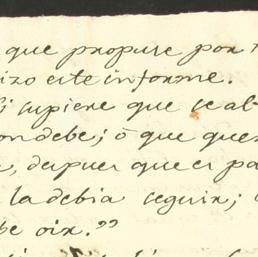 que propuse por
izo este informe.
i supiere que se ab
on debe; ó que que
, despues que es pa
la debia seguir;
be oir."